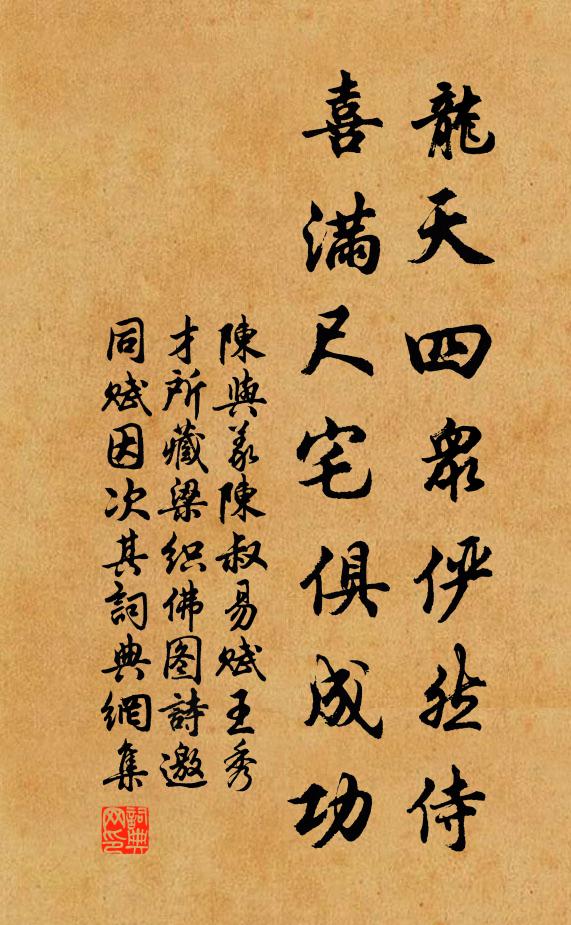 龍天四眾俨然侍
喜滿尺宅俱成功
陳與義陳叔易賦王秀
才所藏梁织佛图詩邀
同賦因次其詞典網集
詞典网印